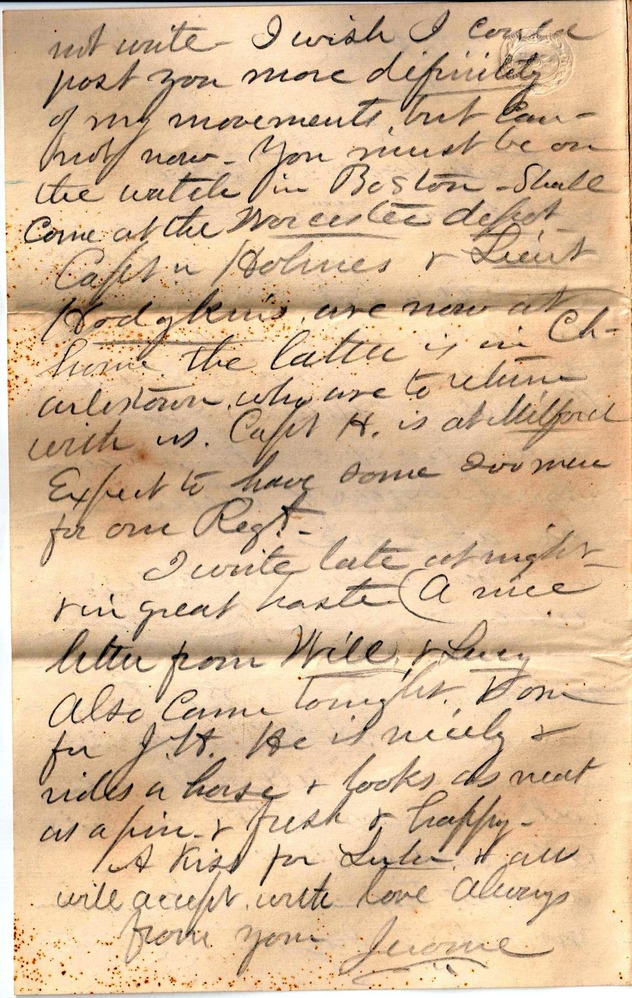 not write - I wish I could
post you more definitely
of my movements, but can-
not now - You must be on
the watch in Boston - Shall
come at the Worcester depot
Capt n Holmes & Lieut
Hodgkins, are now at
home. the latter is in Ch-
arlestown. who are to return
with us. Capt H. is at Milford
Expect to have some 200 men
for our Regt -
I write late at night -
& in great haste (A nice
letter from Will, & Lucy
Also came tonight.
for J.H. He is nicely &
rides a horse & looks as neat
as a pin - & fresh & happy -
A Kiss for Lulu. & all
will accept with love always
from your Jerome